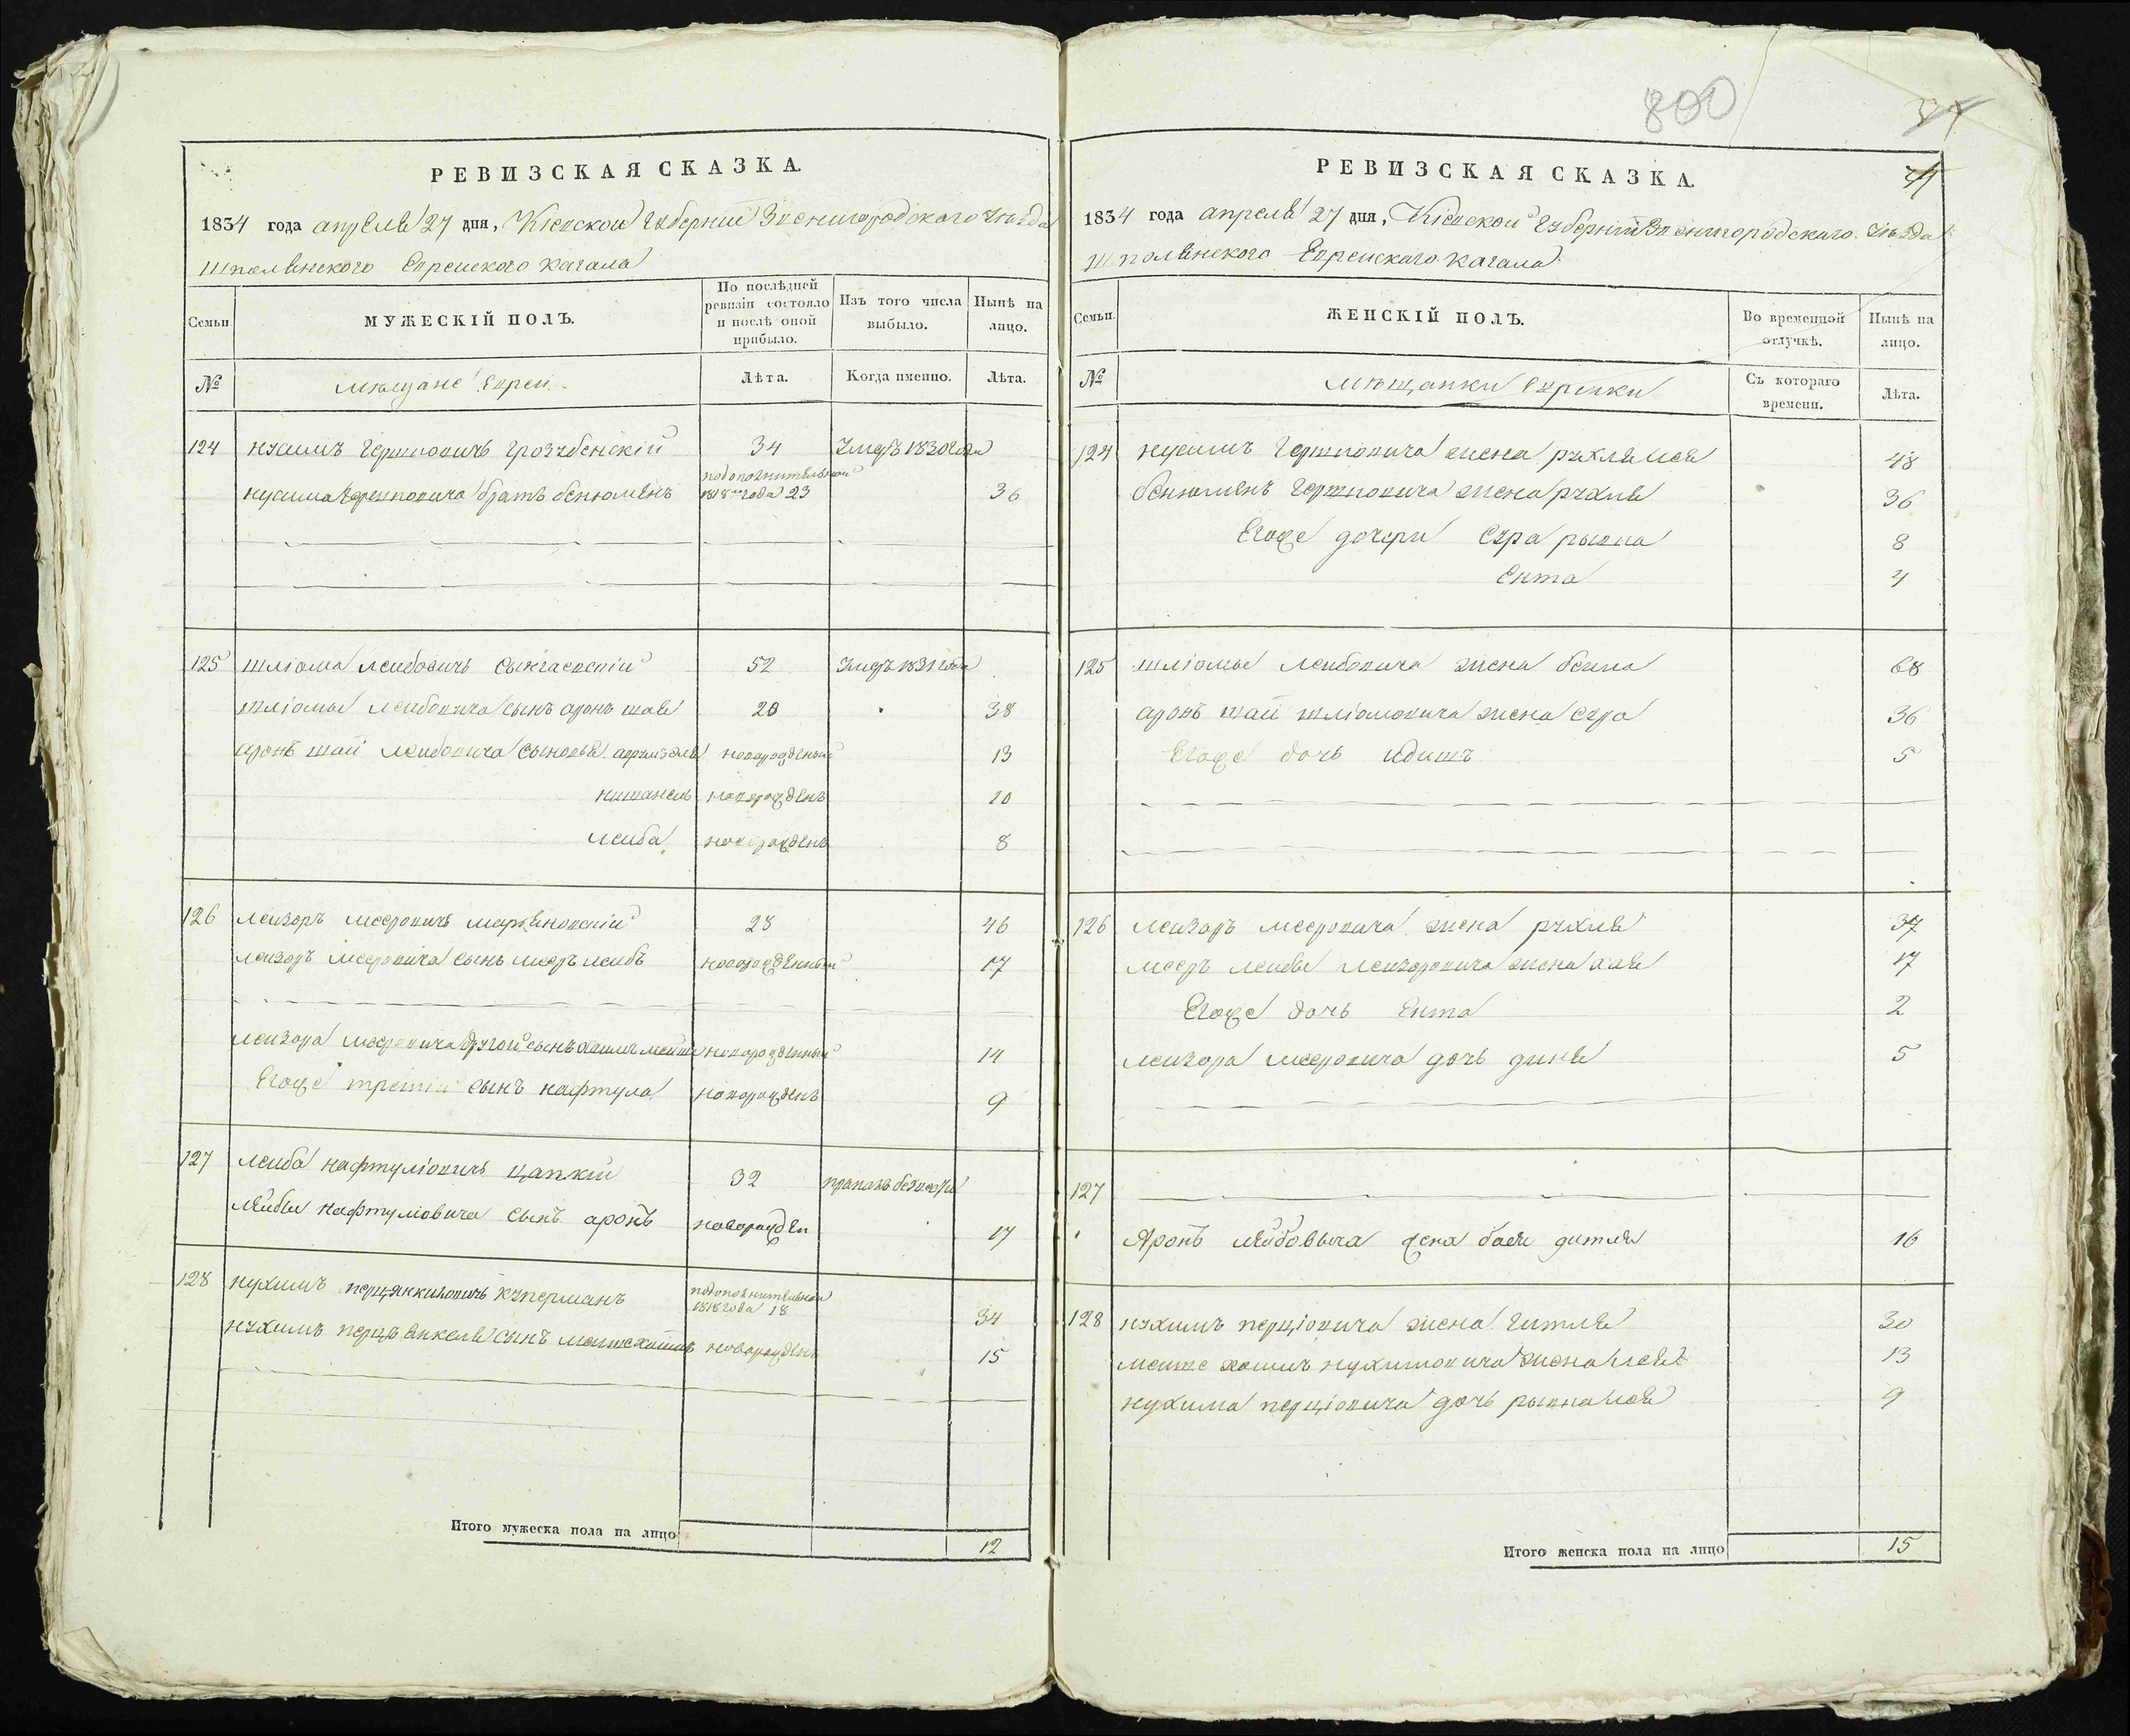 800
РЕВИЗСКАЯ СКАЗКА.
1834 года апреля 27 дня, Кіевской Губерніи Звенигородского уѣзда
Шполянского Еврейского кагала
Семьи
МУЖЕСКІЙ ПОЛЪ.
По послѣдней ревизіи состояло и послѣ оной прибыло.
Изъ того числа выбыло.
Нынѣ на лицо.
№
мѣщане Евреи
Лѣта.
Когда именно.
Лѣта.
124 нусимъ Гершковичъ 34 Умеръ 1830 года
нусима Гершковича братъ бенюмѣнъ подополнительной 1818 года 23 36
125 шліома лейбовичъ 52 Умеръ 1831 года
шліомы лейбовича сынъ аронъ шая 20 38
аронъ шаи лейбовича сыновья новорожденый 13
новорожденъ 10
лейба новорожденъ 8
126 лейзоръ мееровичъ 28 46
лейзоръ мееровича сынъ мееръ лейбъ новорожденный 17
лейзора мееровича другой сынъ новорожденный 14
Егоже третій сынъ нафтула новорожденъ 9
127 лейба нафтуліовичъ цапкій 32 пропалъ
лейбы нафтуліовича сынъ аронъ новорожден 17
128 нухимъ куперманъ подополнительной 1818 года 18 34
нухимъ сынъ новорожденъ 15
Итого мужеска пола на лицо 12
РЕВИЗСКАЯ СКАЗКА.
1834 года апреля 27 дня, Кіевской Губерніи Звенигородскаго уѣзда
Шполянского Еврейскаго кагала
Семьи.
ЖЕНСКІЙ ПОЛЪ.
Во временной отлучкѣ.
Нынѣ на лицо.
№
мѣщанки Еврейки
Съ котораго времени.
Лѣта.
124 нусимъ Гершковича жена рухля лея 48
бенюмѣнъ Гершковича жена рухля 36
Егоже дочери сура рывка 8
Ента 4
125 шліомы лейбовича жена бейла 68
аронъ шаи шліомовича жена сура 36
Егоже дочь идисъ 5
126 лейзоръ мееровича жена рухля 37
мееръ лейбы лейзоровича жена хая 17
Егоже дочь Ента 2
лейзора мееровича дочь дина 5
127
Аронъ лейбовыча жена бася гитля 16
128 нухимъ перціовича жена Гитля 30
нухимовича жена 13
нухима перціовича дочь рывка лея 9
Итого женска пола на лицо 15